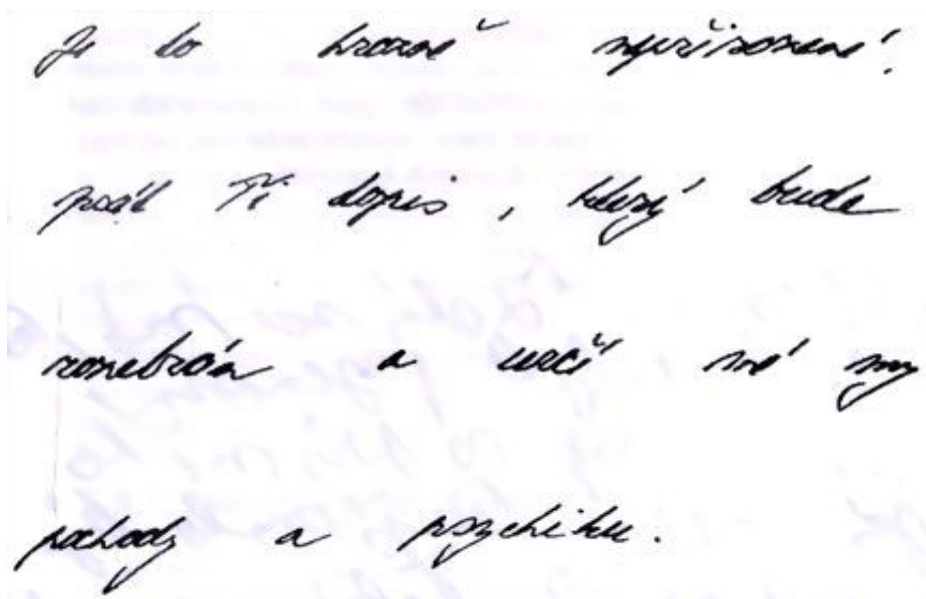 Je to hrozně nepřirozené!
psát Ti dopis, který bude
rozebrán a určí mé my
pochody a psychiku.